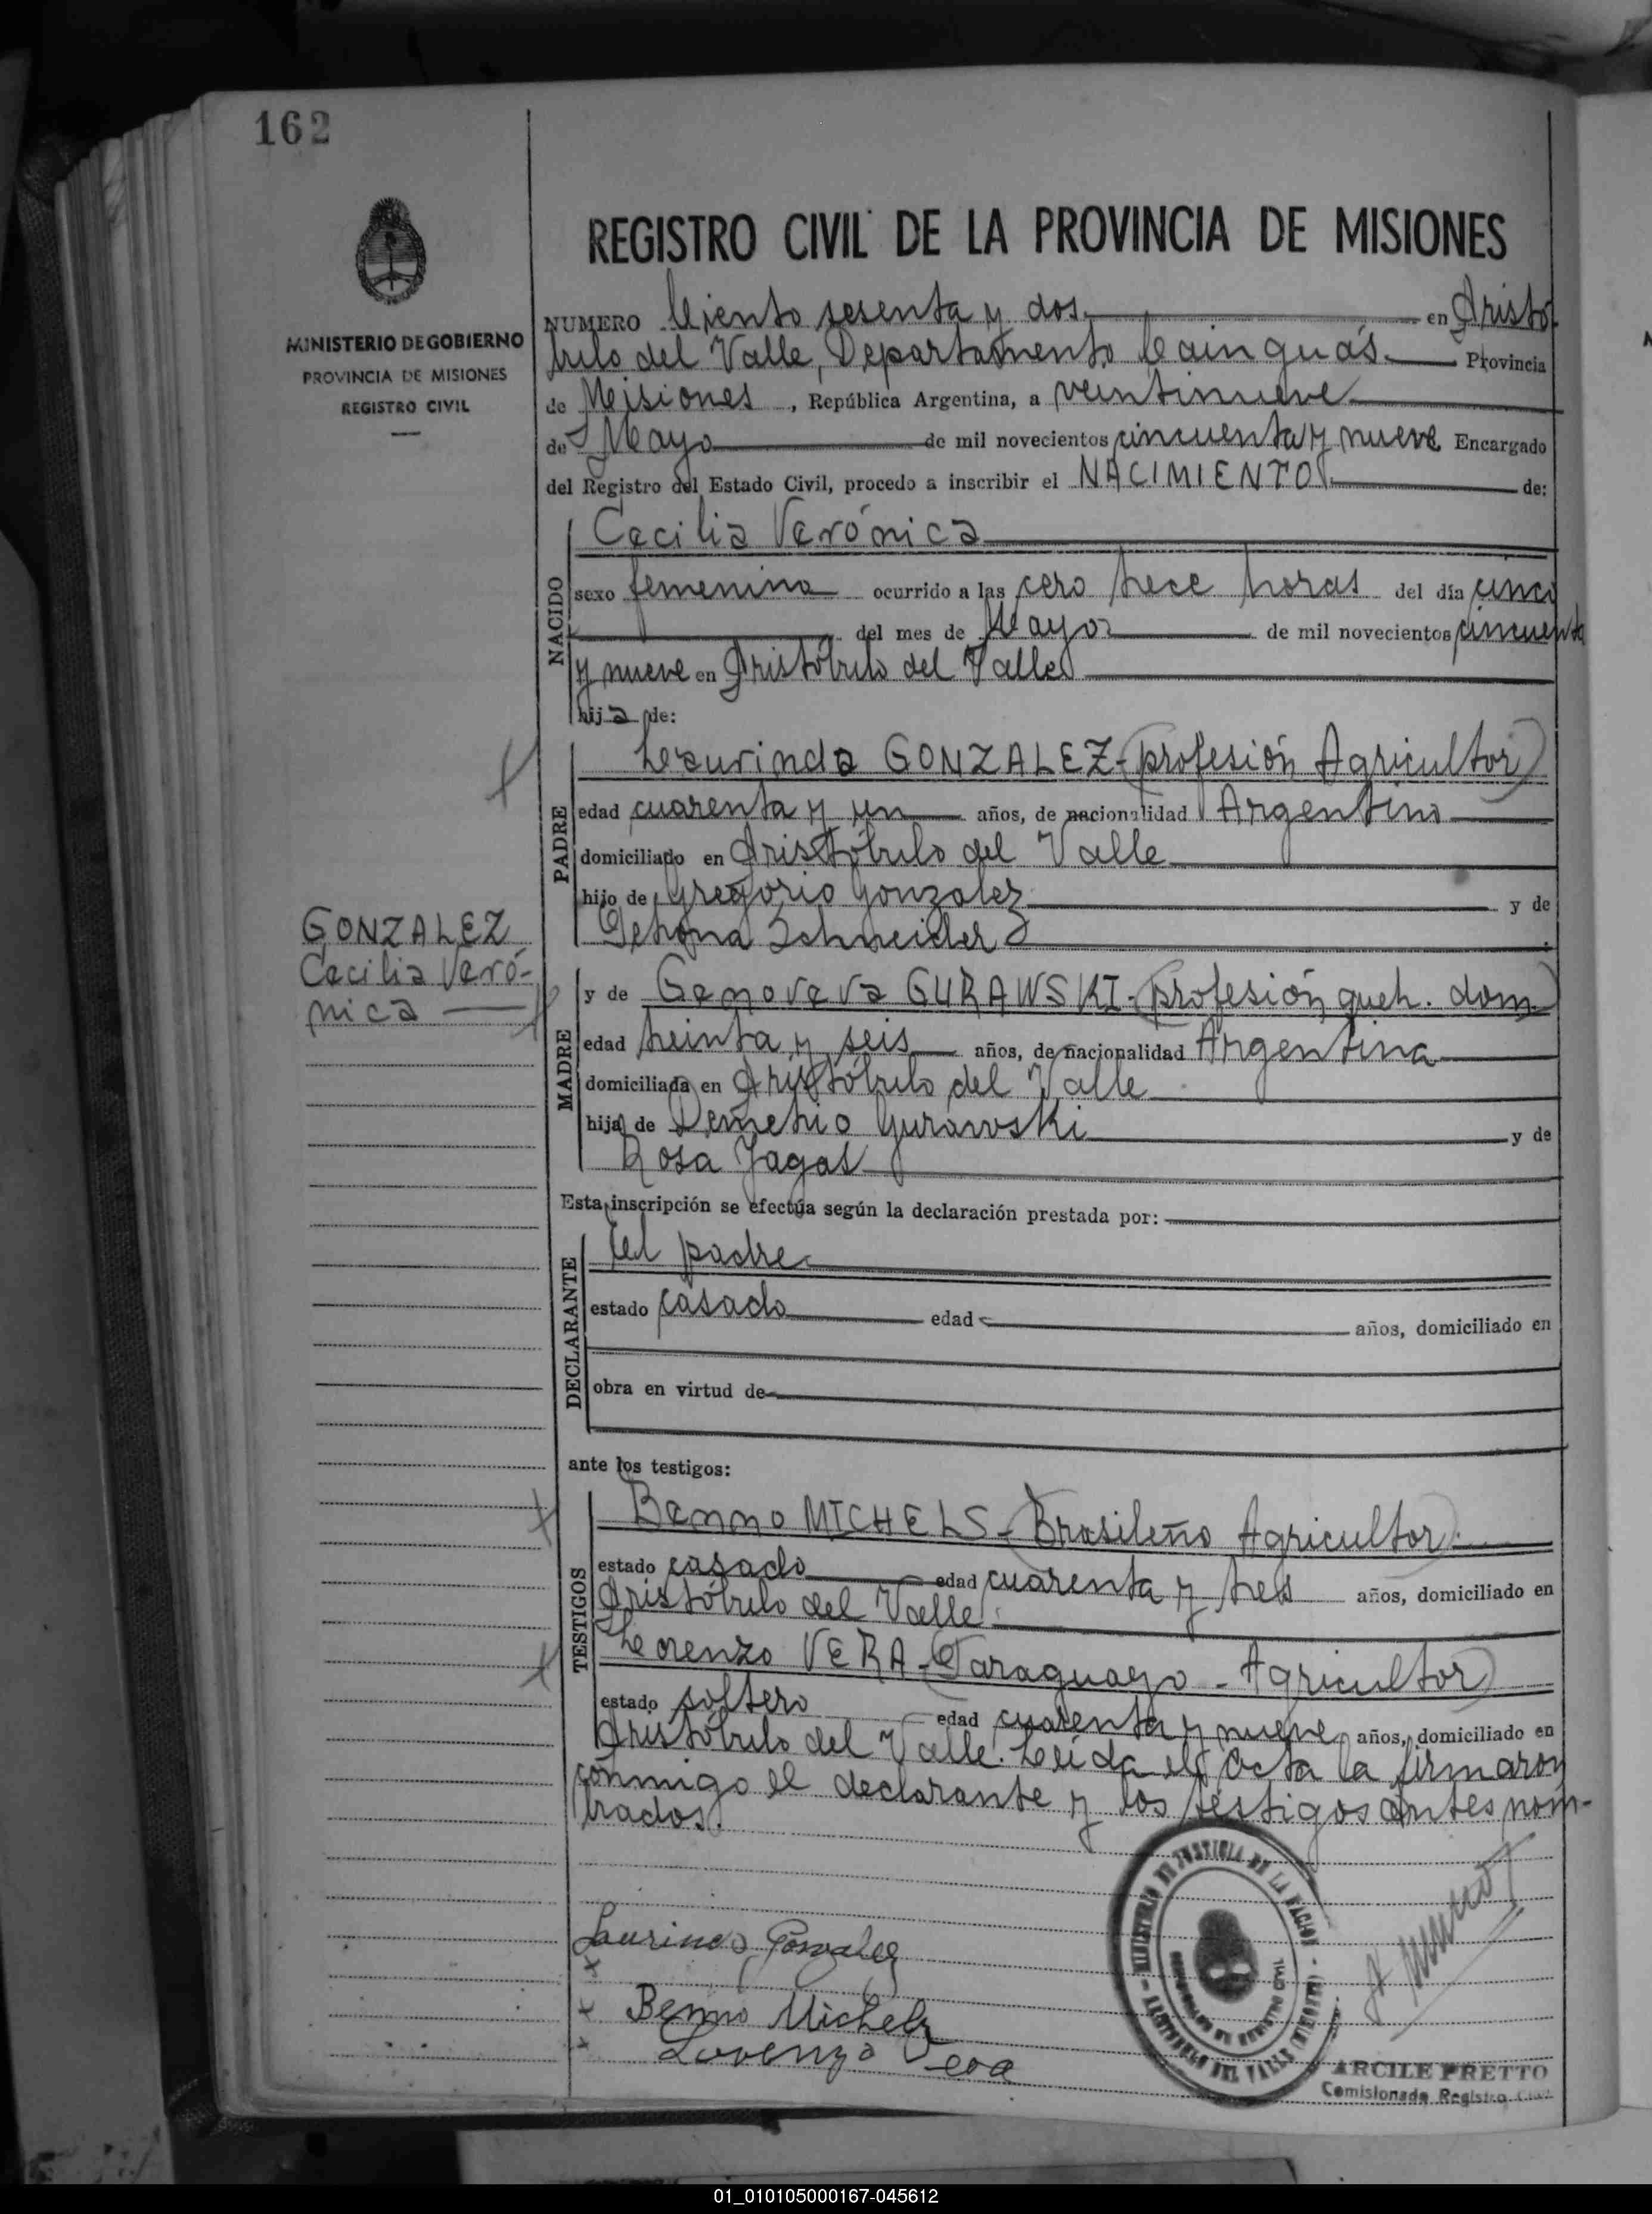 162
MINISTERIO DE GOBIERNO
PROVINCIA DE MISIONES
REGISTRO CIVIL
REGISTRO CIVIL DE LA PROVINCIA DE MISIONES
NUMERO Ciento sesenta y dos en Aristó
bulo del Valle, Departamento Cainguás Provincia
de Misiones, República Argentina, a veintinueve
de Mayo de mil novecientos cincuenta y nueve Encargado
del Registro del Estado Civil, procedo a inscribir el NACIMIENTO de:
NACIDO
Cecilia Verónica
sexo femenino ocurrido a las cero trece horas del día cinco
del mes de Mayo de mil novecientos cincuenta
y nueve en Aristóbulo del Valle
hija de:
PADRE
Laurindo GONZALEZ-(profesión Agricultor)
edad cuarenta y un años, de nacionalidad Argentino
domiciliado en Aristóbulo del Valle
hijo de Gregorio Gonzalez y de
Schneider
GONZALEZ
Cecilia Veró-
nica
MADRE
y de Genoveva GURAWSKI-(profesión queh. dom)
edad treinta y seis años, de nacionalidad Argentina
domiciliada en Aristóbulo del Valle
hija de Demetrio Gurawski y de
Rosa Jagas
Esta inscripción se efectúa según la declaración prestada por:
DECLARANTE
el padre
estado casado edad años, domiciliado en
obra en virtud de
ante los testigos:
TESTIGOS
Benno MICHELS-(Brasileño Agricultor).
estado casado edad cuarenta y tres años, domiciliado en
Aristóbulo del Valle.
Lorenzo VERA-(Paraguayo - Agricultor)
estado soltero edad cuarenta y nueve años, domiciliado en
Aristóbulo del Valle. Leida el acta la firmaron
conmigo el declarante y los testigos antes nom-
brados.
Laurindo Gonzalez
Benno Michels
Lorenzo Vera
MINISTERIO DE JUSTICIA DE LA NACION
ARISTOBULO DEL VALLE (MISIONES)
ARCILE PRETTO
Comisionado Registro Civil
01_010105000167-045612